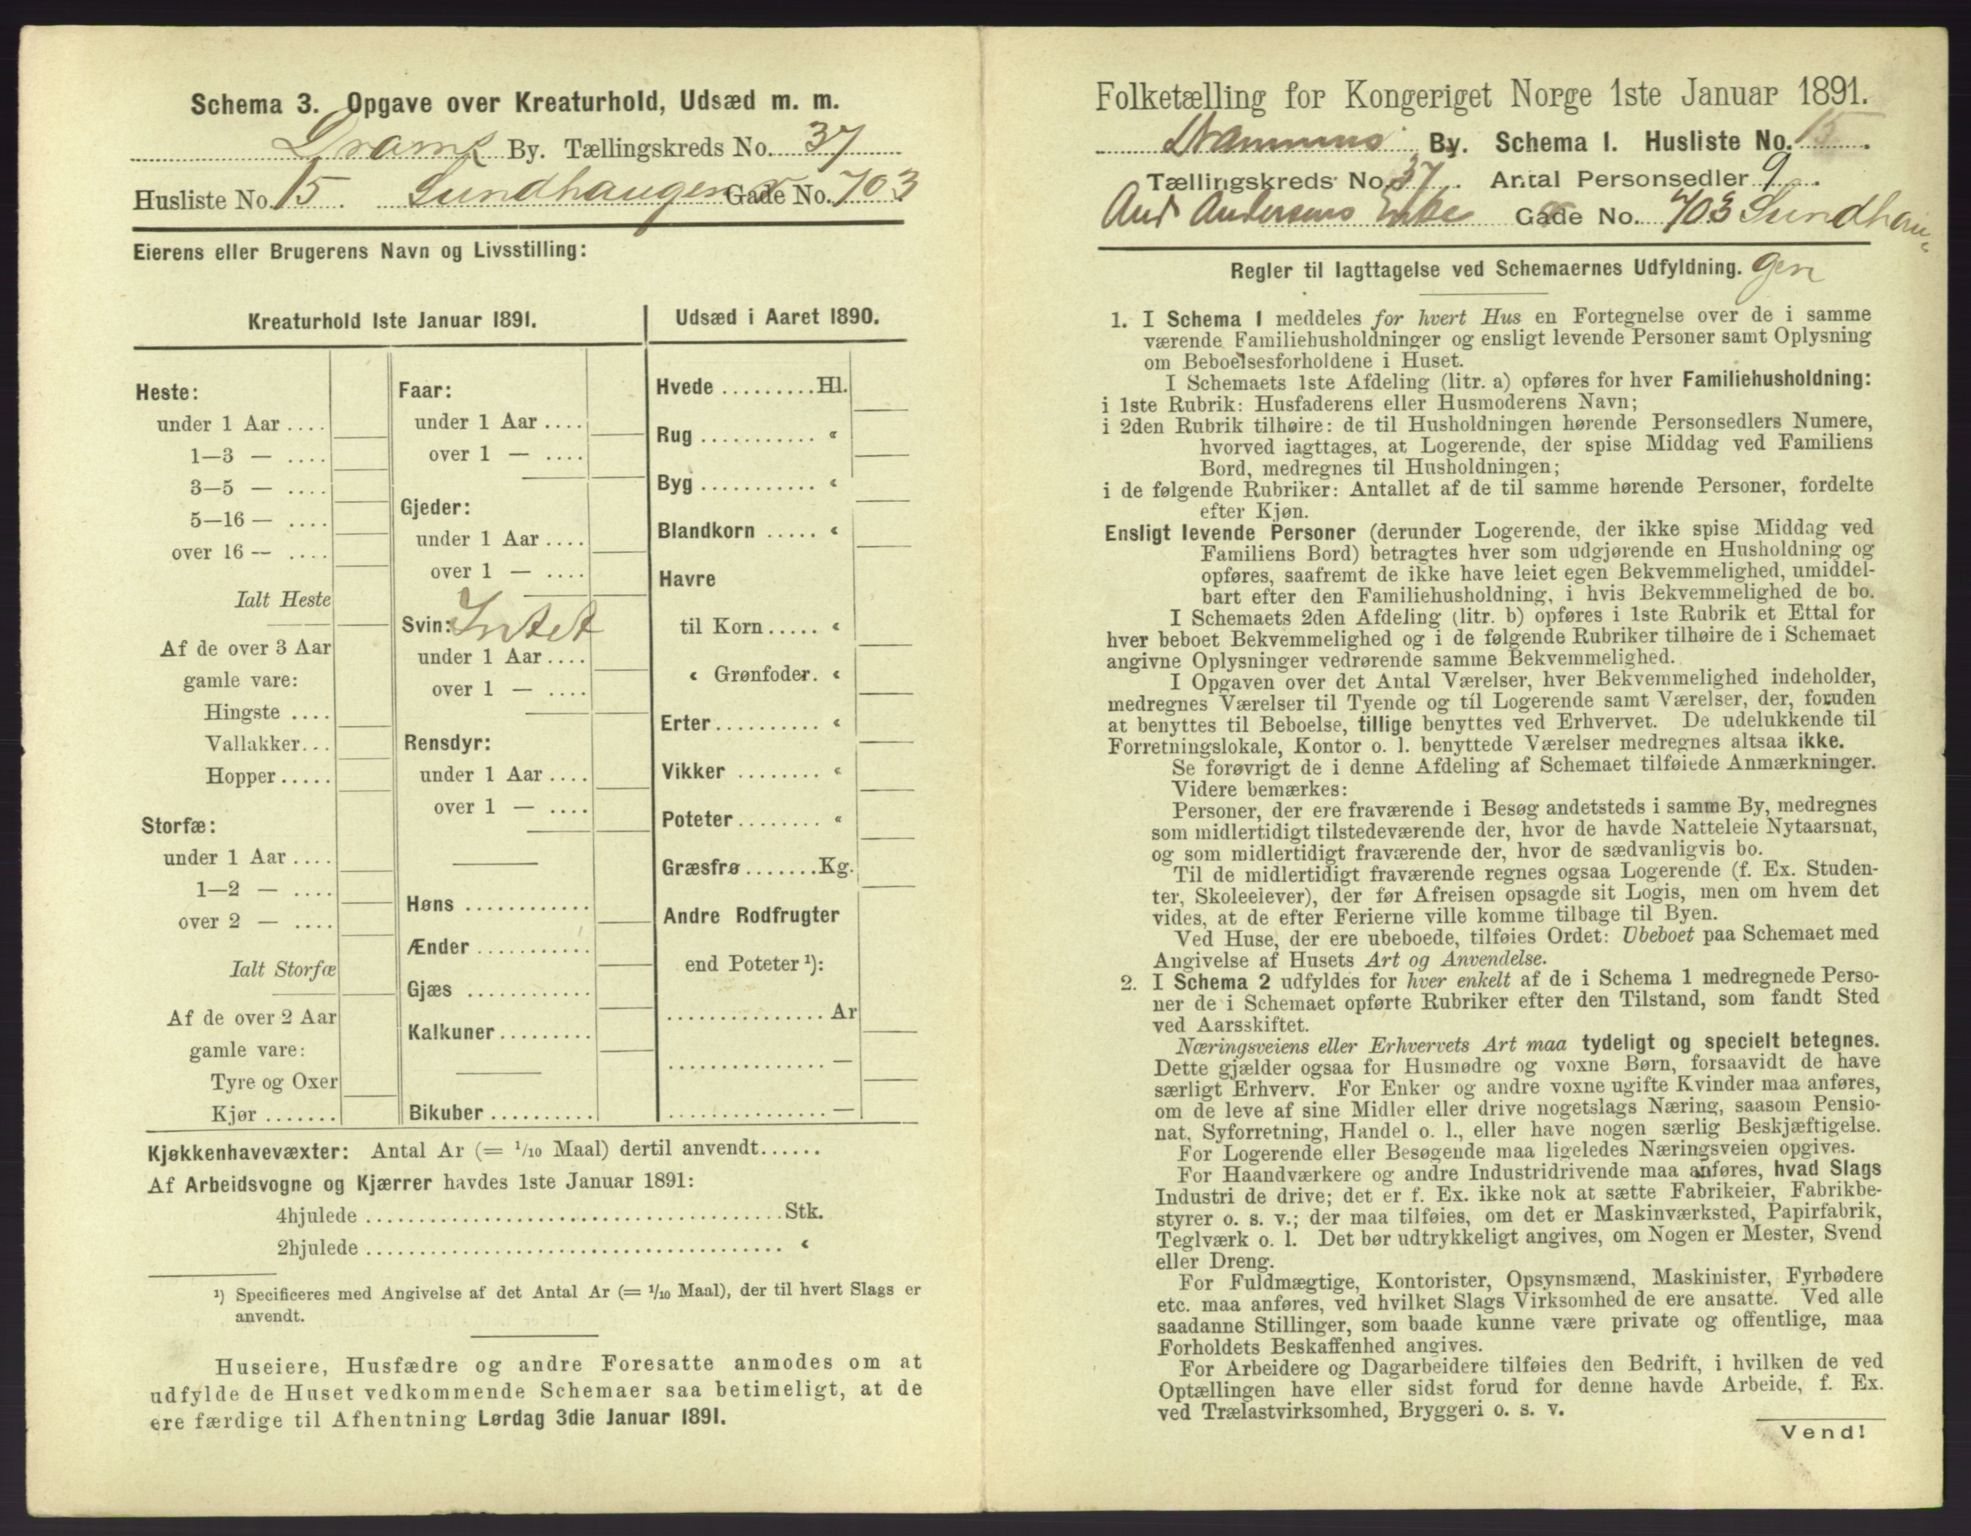 Schema 3. Opgave over Kreaturhold, Udsæd m. m.
Dramr By. Tællingskreds No. 37
Husliste No. 15 Sundhaugen Gade No. 703
Eierens eller Brugerens Navn og Livsstilling:
Kreaturhold 1ste Januar 1891.
Heste:
under 1 Aar ....
1—3 — ....
3—5 — ....
5—16 — ....
over 16 — ....
Ialt Heste
Af de over 3 Aar
gamle vare:
Hingste ....
Vallakker...
Hopper.....
Storfæ:
under 1 Aar ....
1—2 — ....
over 2 — ....
Ialt Storfæ
Af de over 2 Aar
gamle vare:
Tyre og Oxer
Kjør .......
Faar:
under 1 Aar ....
over 1 — ....
Gjeder:
under 1 Aar ....
over 1 — ....
Svin: Intet
under 1 Aar ....
over 1 — ....
Rensdyr:
under 1 Aar ....
over 1 — ....
Høns ............
Ænder ...........
Gjæs ............
Kalkuner .........
Bikuber ..........
Udsæd i Aaret 1890.
Hvede .........Hl.
Rug ........... “
Byg ........... “
Blandkorn ..... “
Havre
til Korn ..... “
“ Grønfoder. “
Erter.......... “
Vikker ........ “
Poteter........ “
Græsfrø .......Kg.
Andre Rodfrugter
end Poteter ¹):
...............Ar
............... —
............... —
Kjøkkenhavevæxter: Antal Ar (= 1/10 Maal) dertil anvendt......
Af Arbeidsvogne og Kjærrer havdes 1ste Januar 1891:
4hjulede ........................................Stk.
2hjulede ........................................ “
¹) Specificeres med Angivelse af det Antal Ar (= 1/10 Maal), der til hvert Slags er
anvendt.
Huseiere, Husfædre og andre Foresatte anmodes om at
udfylde de Huset vedkommende Schemaer saa betimeligt, at de
ere færdige til Afhentning Lørdag 3die Januar 1891.
Folketælling for Kongeriget Norge 1ste Januar 1891.
Drammens By. Schema 1. Husliste No. 15.
Tællingskreds No. 37. Antal Personsedler 9.
And Andersens Enke Gade No. 703 Sundhau-
gen
Regler til Iagttagelse ved Schemaernes Udfyldning.
1. I Schema 1 meddeles for hvert Hus en Fortegnelse over de i samme
værende Familiehusholdninger og ensligt levende Personer samt Oplysning
om Beboelsesforholdene i Huset.
I Schemaets 1ste Afdeling (litr. a) opføres for hver Familiehusholdning:
i 1ste Rubrik: Husfaderens eller Husmoderens Navn;
i 2den Rubrik tilhøire: de til Husholdningen hørende Personsedlers Numere,
hvorved iagttages, at Logerende, der spise Middag ved Familiens
Bord, medregnes til Husholdningen;
i de følgende Rubriker: Antallet af de til samme hørende Personer, fordelte
efter Kjøn.
Ensligt levende Personer (derunder Logerende, der ikke spise Middag ved
Familiens Bord) betragtes hver som udgjørende en Husholdning og
opføres, saafremt de ikke have leiet egen Bekvemmelighed, umiddel-
bart efter den Familiehusholdning, i hvis Bekvemmelighed de bo.
I Schemaets 2den Afdeling (litr. b) opføres i 1ste Rubrik et Ettal for
hver beboet Bekvemmelighed og i de følgende Rubriker tilhøire de i Schemaet
angivne Oplysninger vedrørende samme Bekvemmelighed.
I Opgaven over det Antal Værelser, hver Bekvemmelighed indeholder,
medregnes Værelser til Tyende og til Logerende samt Værelser, der, foruden
at benyttes til Beboelse, tillige benyttes ved Erhvervet. De udelukkende til
Forretningslokale, Kontor o. l. benyttede Værelser medregnes altsaa ikke.
Se forøvrigt de i denne Afdeling af Schemaet tilføiede Anmærkninger.
Videre bemærkes:
Personer, der ere fraværende i Besøg andetsteds i samme By, medregnes
som midlertidigt tilstedeværende der, hvor de havde Natteleie Nytaarsnat,
og som midlertidigt fraværende der, hvor de sædvanligvis bo.
Til de midlertidigt fraværende regnes ogsaa Logerende (f. Ex. Studen-
ter, Skoleelever), der før Afreisen opsagde sit Logis, men om hvem det
vides, at de efter Ferierne ville komme tilbage til Byen.
Ved Huse, der ere ubeboede, tilføies Ordet: Ubeboet paa Schemaet med
Angivelse af Husets Art og Anvendelse.
2. I Schema 2 udfyldes for hver enkelt af de i Schema 1 medregnede Perso-
ner de i Schemaet opførte Rubriker efter den Tilstand, som fandt Sted
ved Aarsskiftet.
Næringsveiens eller Erhvervets Art maa tydeligt og specielt betegnes.
Dette gjælder ogsaa for Husmødre og voxne Børn, forsaavidt de have
særligt Erhverv. For Enker og andre voxne ugifte Kvinder maa anføres,
om de leve af sine Midler eller drive nogetslags Næring, saasom Pensio-
nat, Syforretning, Handel o. l., eller have nogen særlig Beskjæftigelse.
For Logerende eller Besøgende maa ligeledes Næringsveien opgives.
For Haandværkere og andre Industridrivende maa anføres, hvad Slags
Industri de drive; det er f. Ex. ikke nok at sætte Fabrikeier, Fabrikbe-
styrer o. s. v.; der maa tilføies, om det er Maskinværksted, Papirfabrik,
Teglværk o. l. Det bør udtrykkeligt angives, om Nogen er Mester, Svend
eller Dreng.
For Fuldmægtige, Kontorister, Opsynsmænd, Maskinister, Fyrbødere
etc. maa anføres, ved hvilket Slags Virksomhed de ere ansatte. Ved alle
saadanne Stillinger, som baade kunne være private og offentlige, maa
Forholdets Beskaffenhed angives.
For Arbeidere og Dagarbeidere tilføies den Bedrift, i hvilken de ved
Optællingen have eller sidst forud for denne havde Arbeide, f. Ex.
ved Trælastvirksomhed, Bryggeri o. s. v.
Vend!